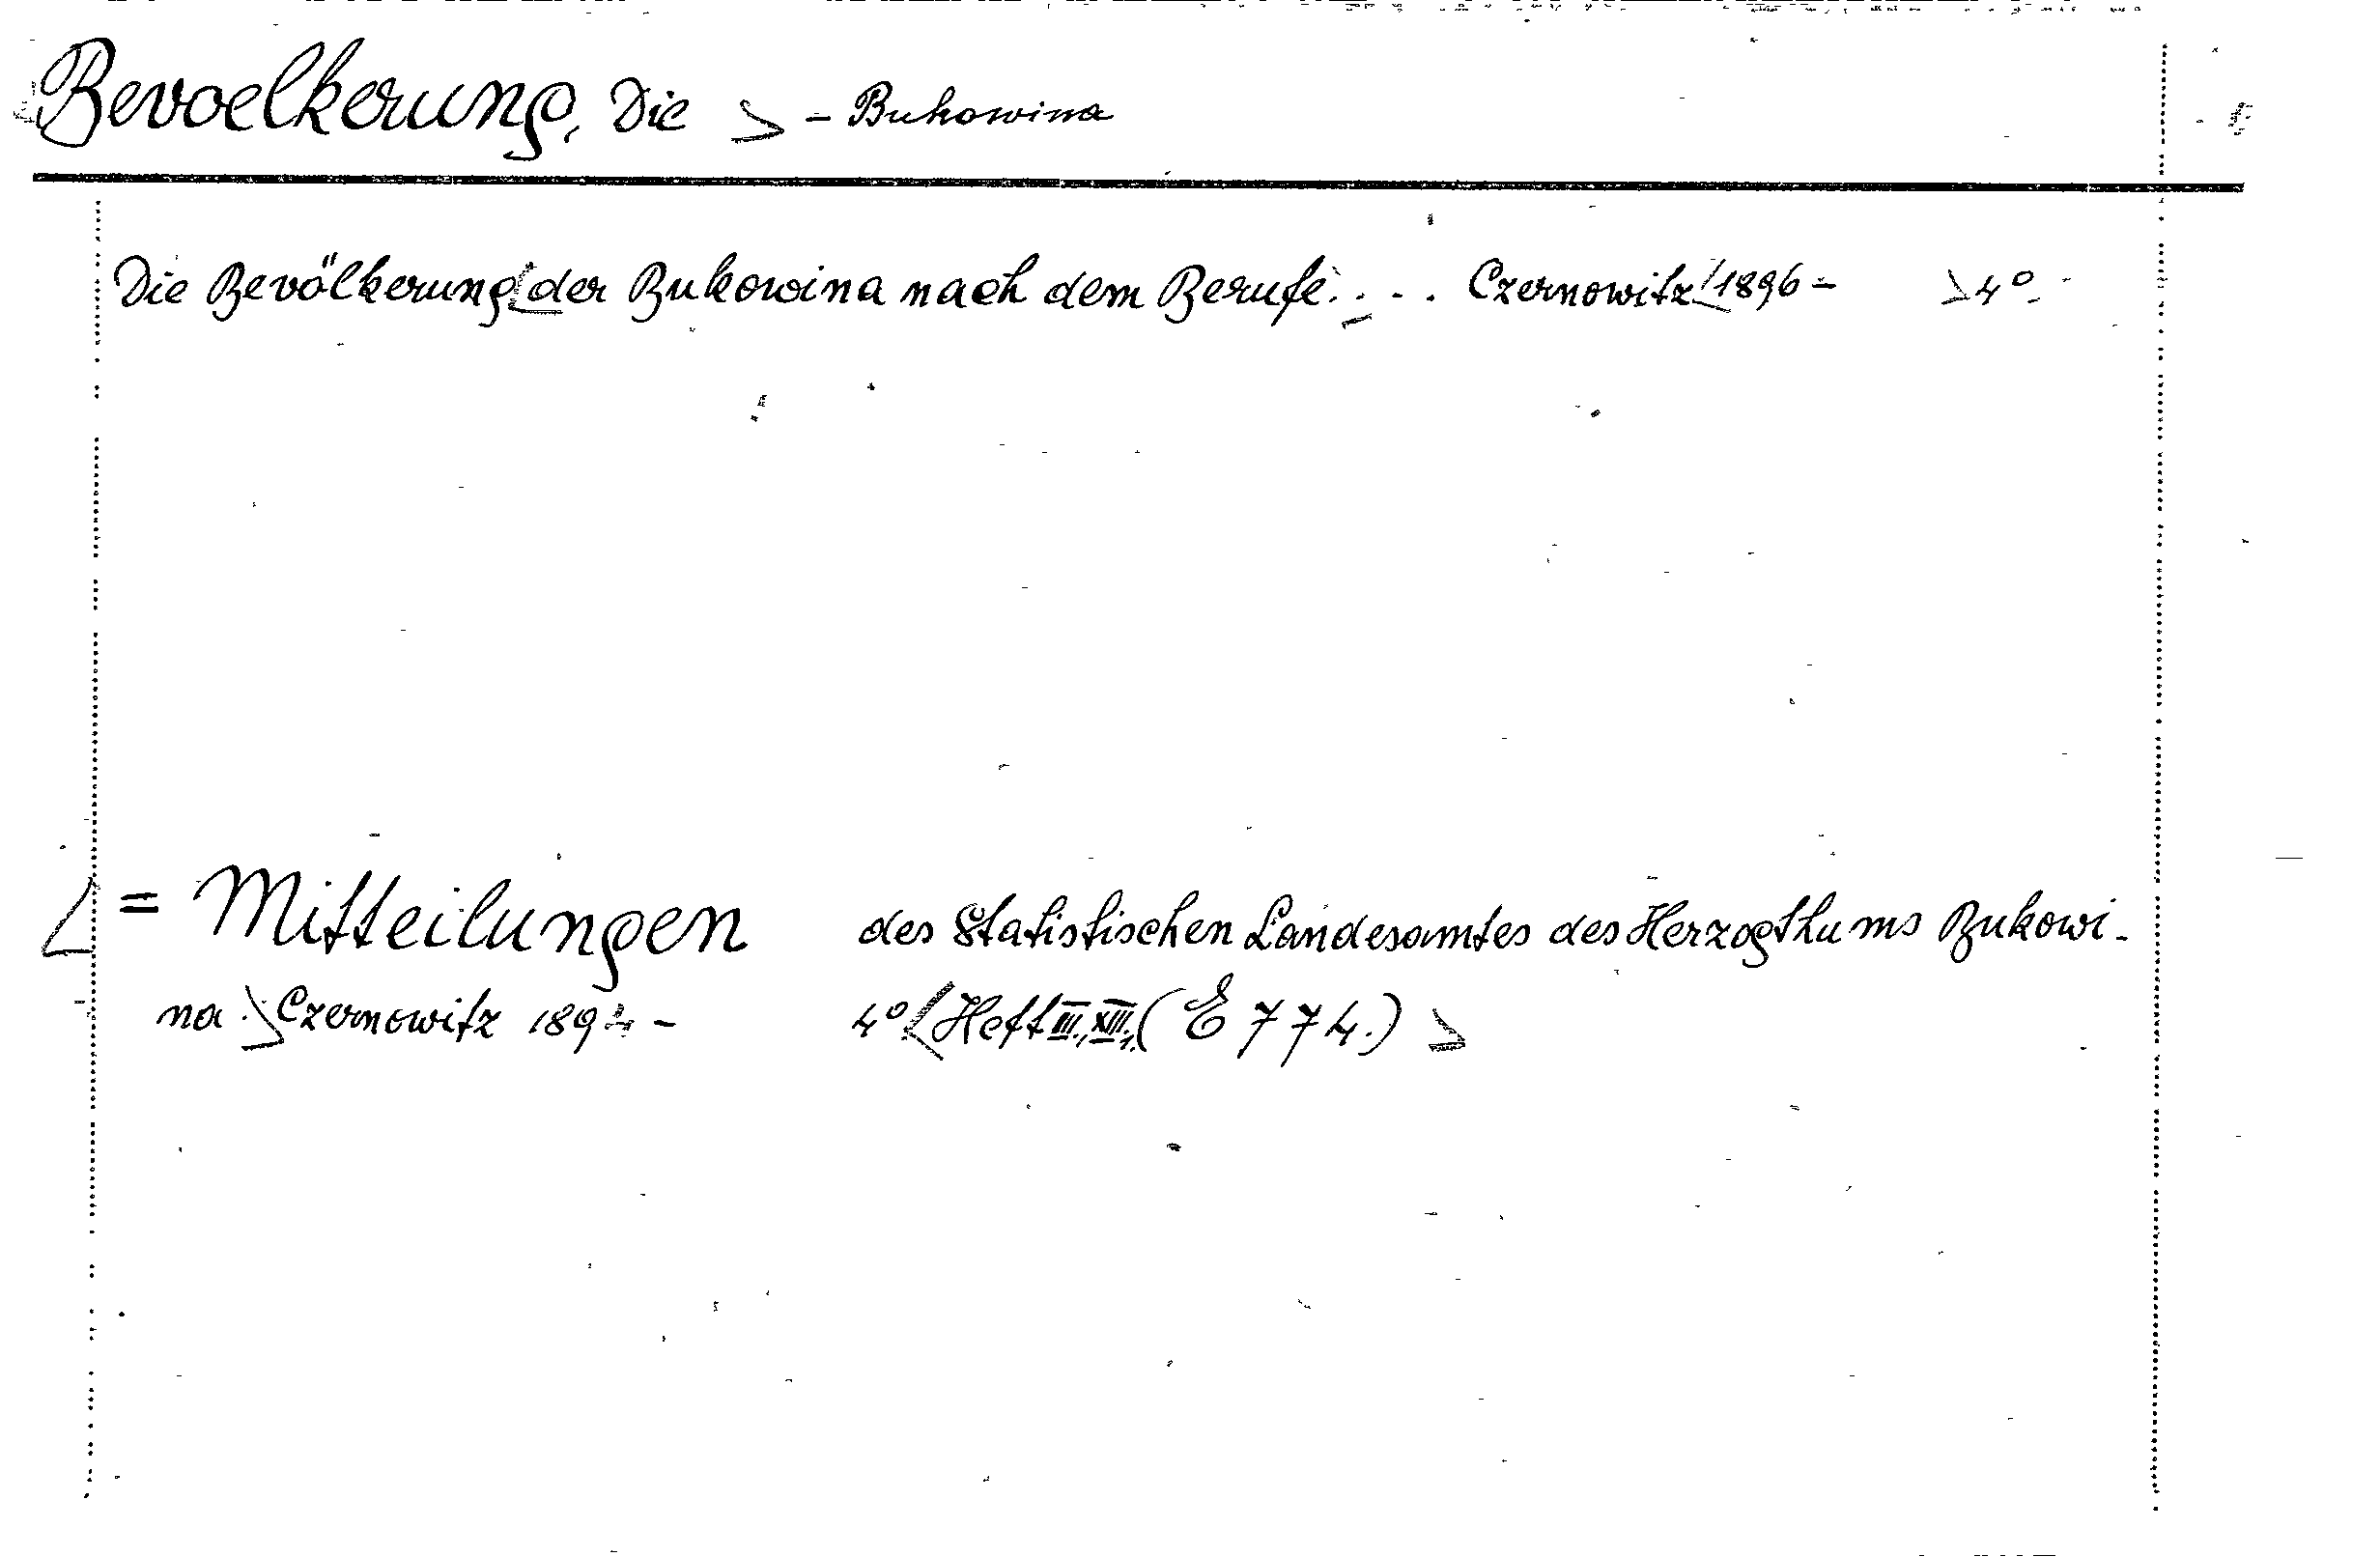 Bevoelkerung, Die > - Bukowina
Die Bevölkerung der Bukowina nach dem Berufe.... Czernowitz 1896 - > 4°.
= Mitteilungen des Statistischen Landesamtes des Herzogthums Bukowi-
na. > Czernowitz 189 - 4° < Heft III., XIII., (E 774.) >